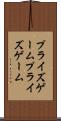 プライズゲ
ームプライ
ズゲーム